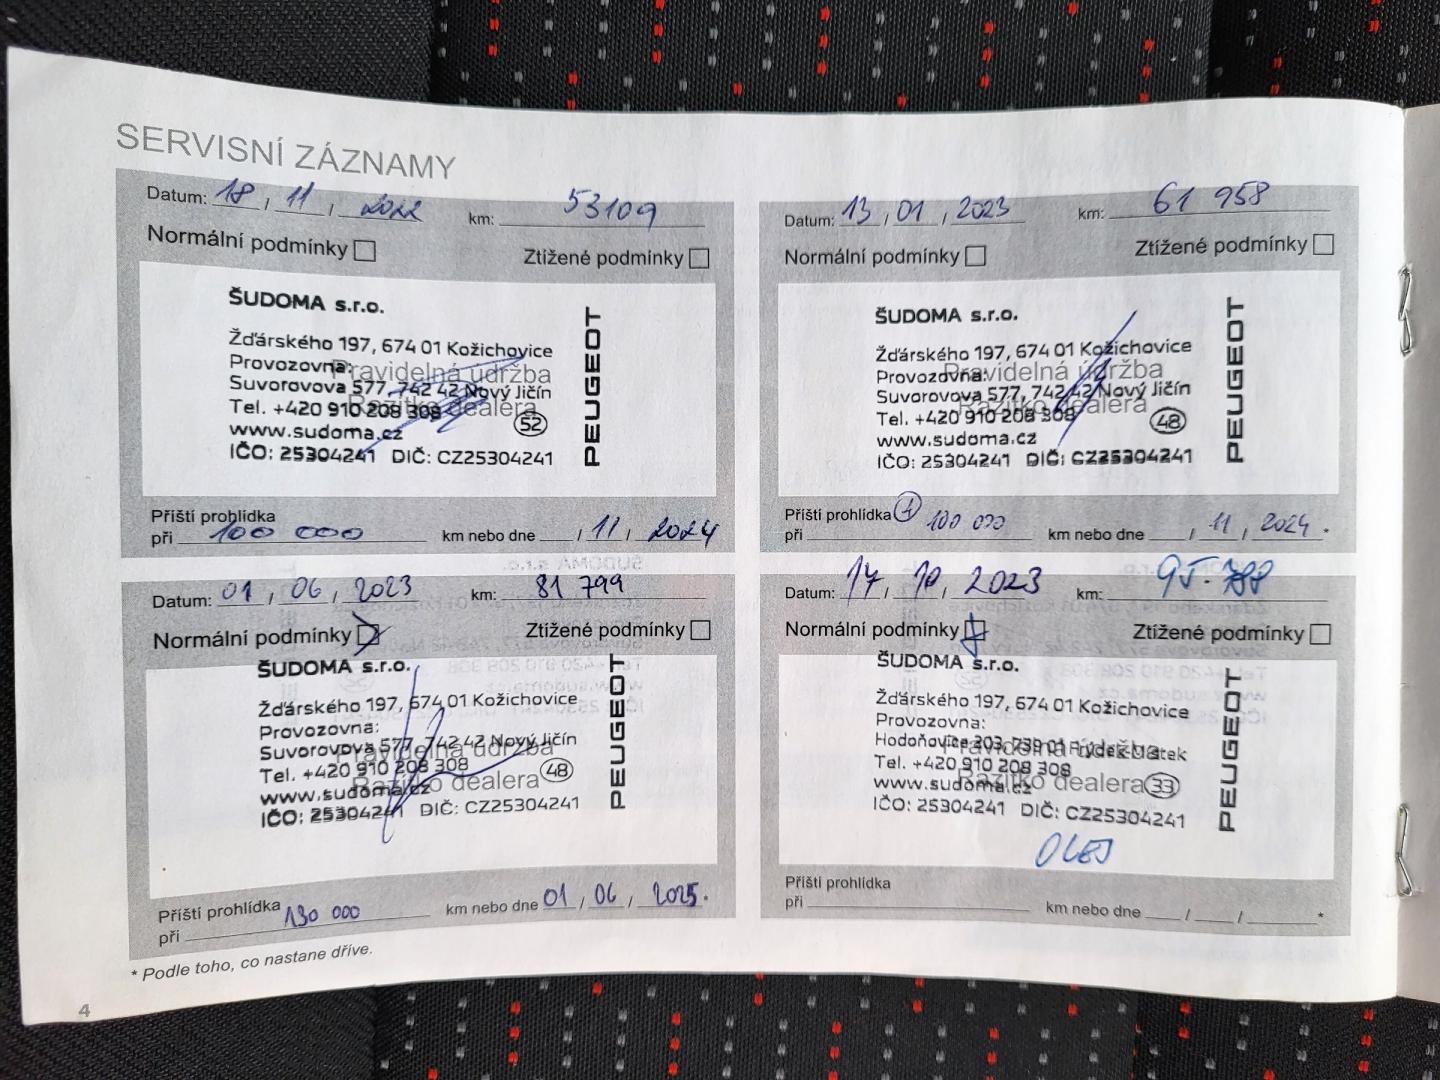 SERVISNÍ ZÁZNAMY
Datum: 18 / 11 / 2022 km: 53109
Normální podmínky Ztížené podmínky
ŠUDOMA s.r.o.
Žďárského 197, 674 01 Kožichovice
Provozovna:
Pravidelná údržba
Suvorovova 577, 742 42 Nový Jičín
Razítko dealera
Tel. +420 910 208 308
52
www.sudoma.cz
IČO: 25304241 DIČ: CZ25304241
PEUGEOT
Příští prohlídka
při 100 000 km nebo dne / 11 / 2024
Datum: 13 / 01 / 2023 km: 61 958
Normální podmínky Ztížené podmínky
ŠUDOMA s.r.o.
Žďárského 197, 674 01 Kožichovice
Provozovna:
Pravidelná údržba
Suvorovova 577, 742 42 Nový Jičín
Razítko dealera
Tel. +420 910 208 308
48
www.sudoma.cz
IČO: 25304241 DIČ: CZ25304241
PEUGEOT
Příští prohlídka
při 100 000 km nebo dne / 11 / 2024.
Datum: 01 / 06 / 2023 km: 81 799
Normální podmínky Ztížené podmínky
ŠUDOMA s.r.o.
Žďárského 197, 674 01 Kožichovice
Provozovna:
Suvorovova 577, 742 42 Nový Jičín
Pravidelná údržba
Tel. +420 910 208 308
48
Razítko dealera
www.sudoma.cz
IČO: 25304241 DIČ: CZ25304241
PEUGEOT
Příští prohlídka
při 130 000 km nebo dne 01 / 06 / 2025.
Datum: 17 / 10 / 2023 km: 95.788
Normální podmínky Ztížené podmínky
ŠUDOMA s.r.o.
Žďárského 197, 674 01 Kožichovice
Provozovna:
Hodoňovice 203, 739 01 Frýdek-Místek
Pravidelná údržba
Tel. +420 910 208 308
Razítko dealera
33
www.sudoma.cz
IČO: 25304241 DIČ: CZ25304241
PEUGEOT
OLEJ
Příští prohlídka
při km nebo dne / / *
* Podle toho, co nastane dříve.
4